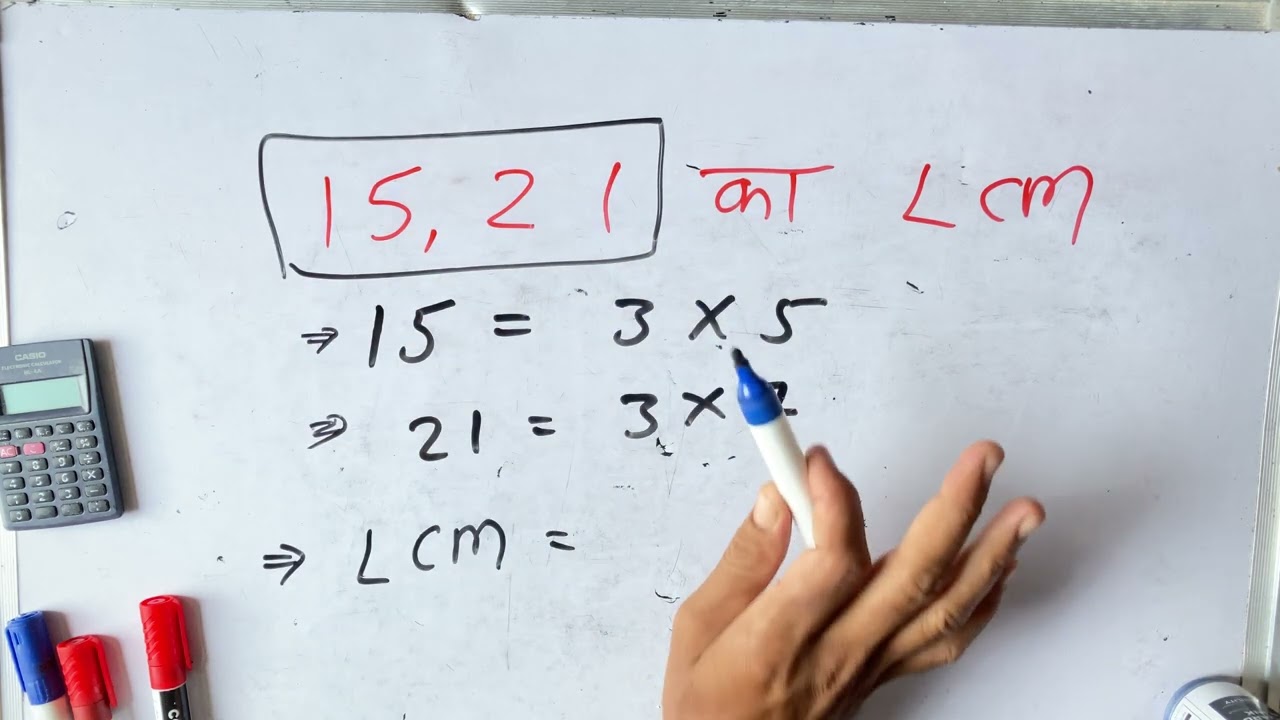 15, 21 का LCM
⇒ 15 = 3 × 5
⇒ 21 = 3 ×
⇒ LCM =
CASIO